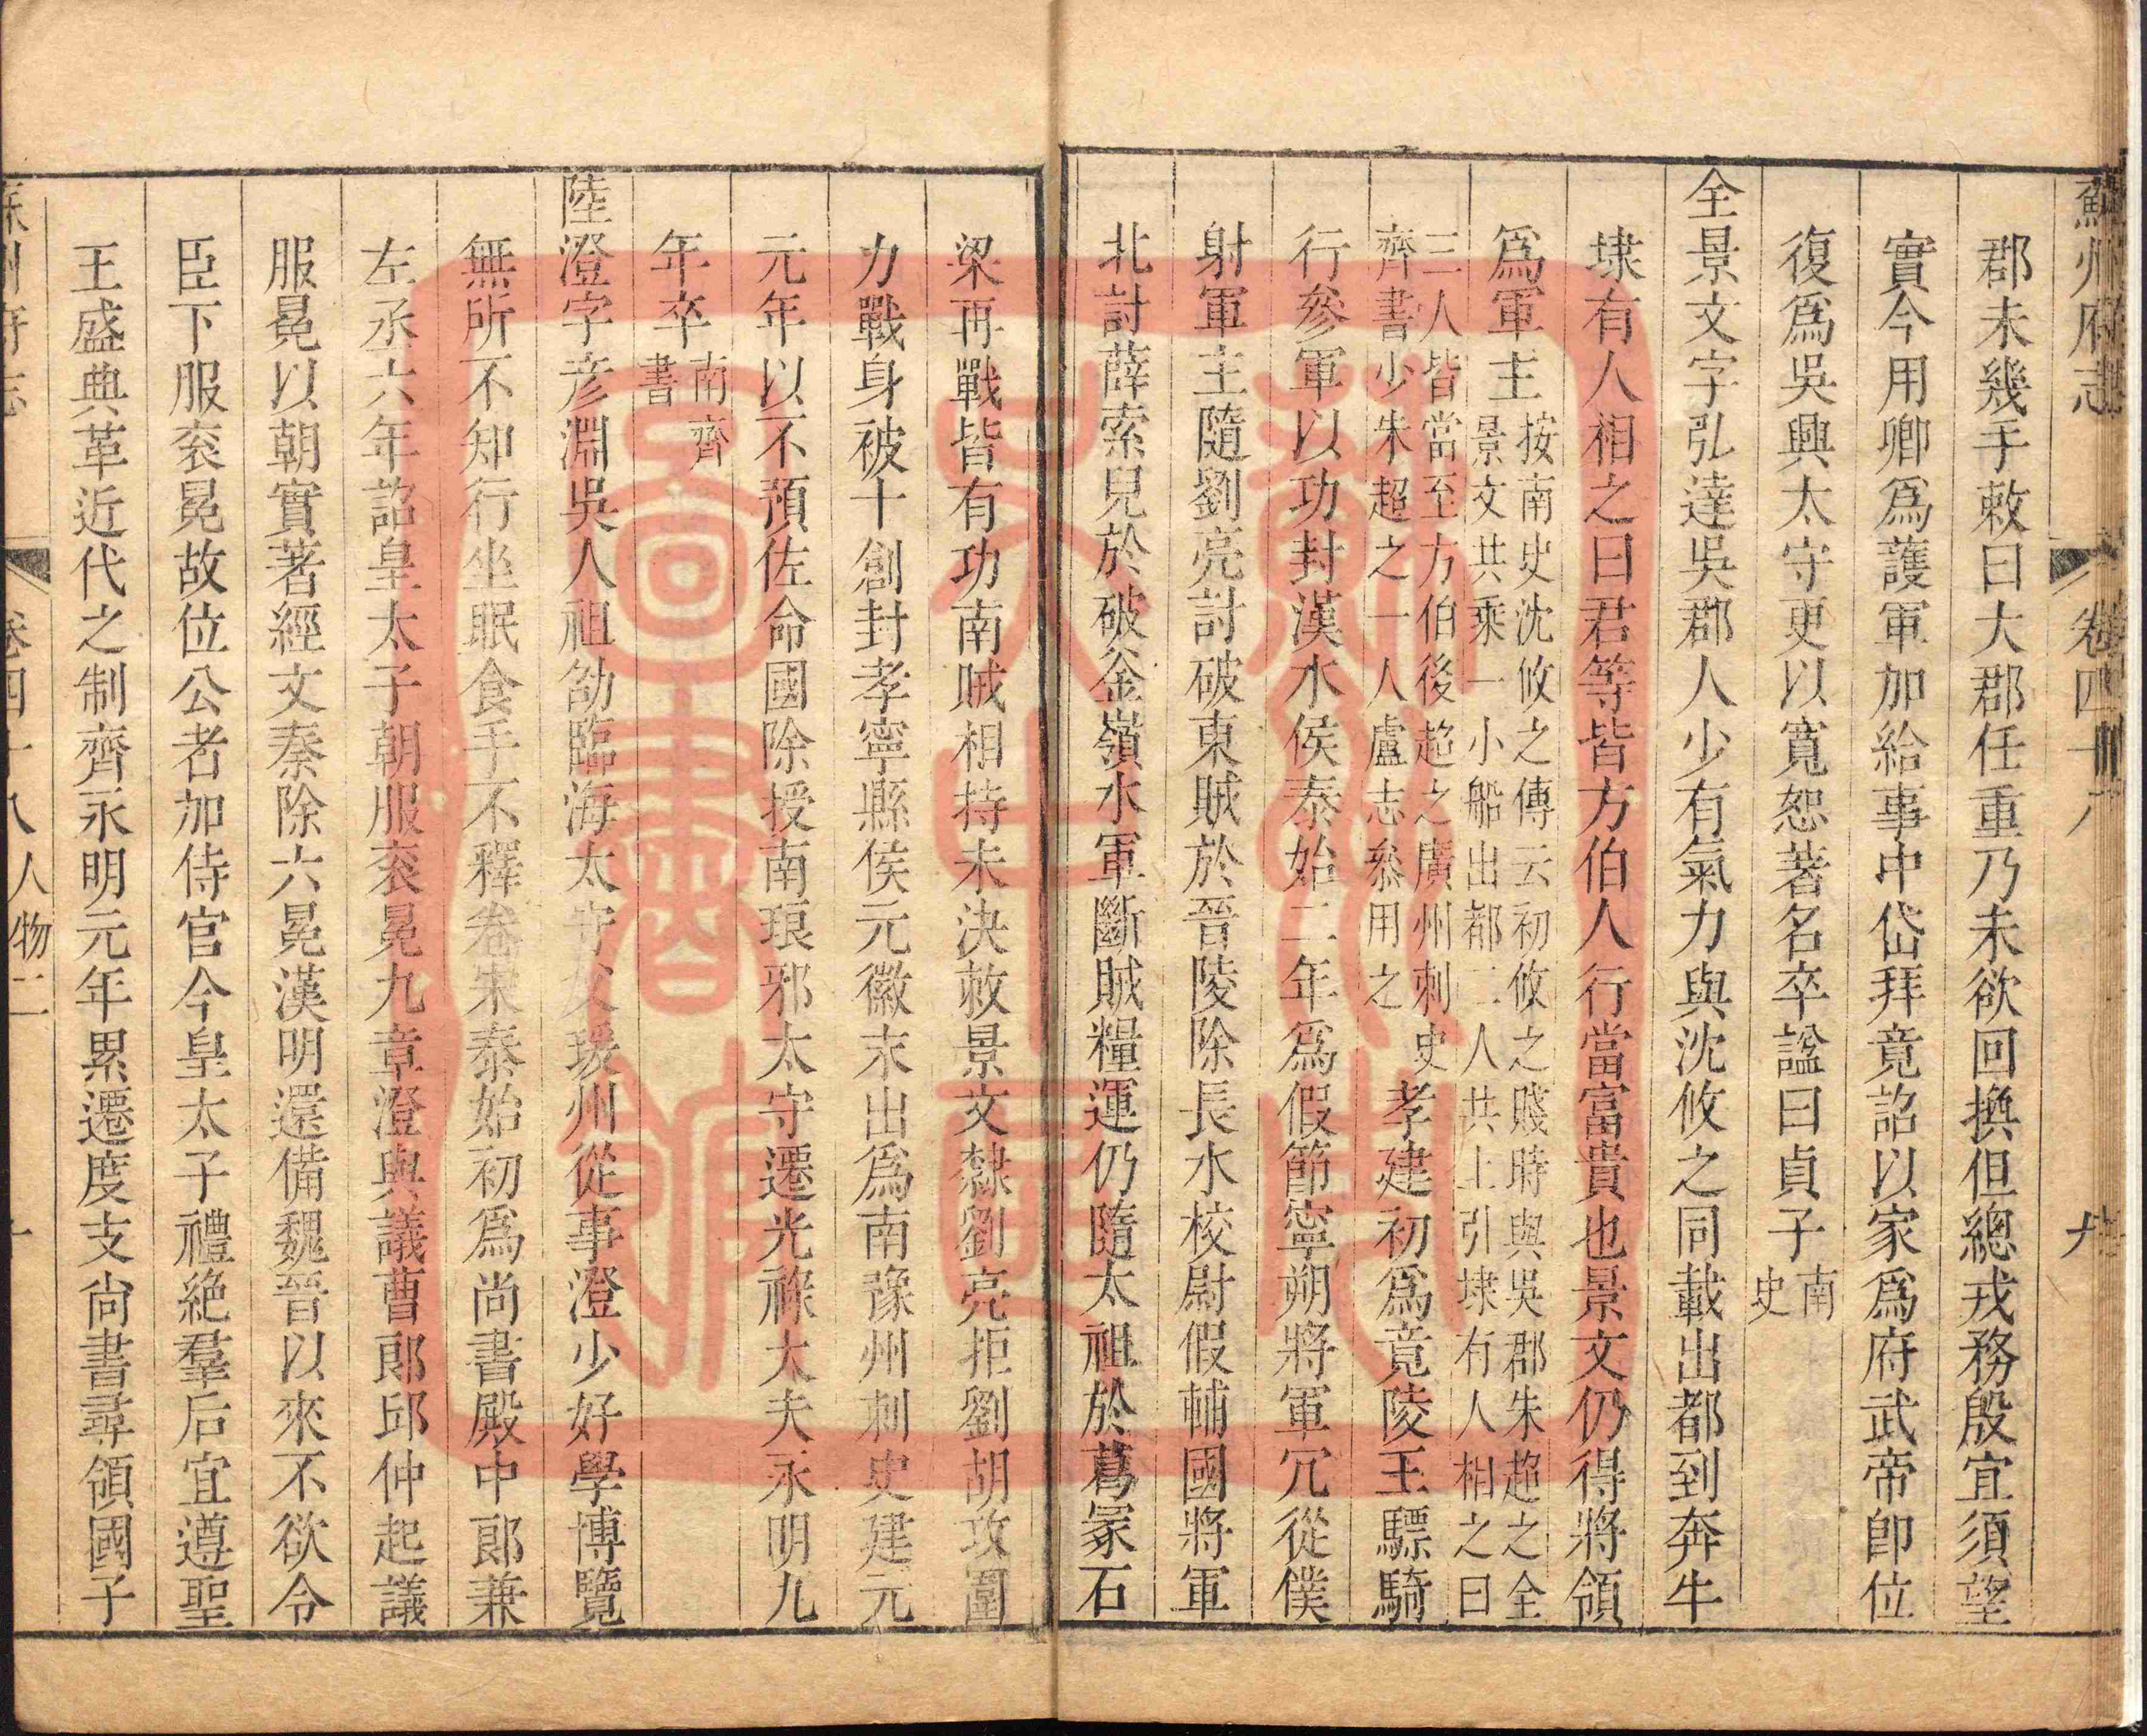 蘇州府志
卷四十八
郡未幾手敕曰大郡任重乃未欲回換但總戎務殷宜須望
實今用卿爲護軍加給事中岱拜竟詔以家爲府武帝卽位
復爲吳興太守更以寬恕著名卒諡曰貞子南
史
全景文字弘達吳郡人少有氣力與沈攸之同載出都到奔牛
埭有人相之曰君等皆方伯人行當富貴也景文仍得將領
爲軍主
按南史沈攸之傳云初攸之賤時與吳郡朱超之全
景文共乘一小船出都二人共上引埭有人相之曰
三人皆當至方伯後超之廣州刺史
齊書少朱超之一人盧志叅用之
孝建初爲竟陵王驃騎
行參軍以功封漢水侯泰始二年爲假節寧朔將軍冗從僕
射軍主隨劉亮討破東賊於晉陵除長水校尉假輔國將軍
北討薛索兒於破釜嶺水軍斷賊糧運仍隨太祖於葛冡石
梁再戰皆有功南賊相持未決敕景文隸劉亮拒劉胡攻圍
力戰身被十創封孝寧縣侯元徽末出爲南豫州刺史建元
元年以不預佐命國除授南琅邪太守遷光祿大夫永明九
年卒
南齊
書
陸澄字彦淵吳人祖劭臨海太守父瑗州從事澄少好學博覽
無所不知行坐眠食手不釋卷宋泰始初爲尚書殿中郞兼
左丞六年詔皇太子朝服衮冕九章澄與議曹郞邱仲起議
服冕以朝實著經文秦除六冕漢明還備魏晉以來不欲令
臣下服衮冕故位公者加侍官今皇太子禮絶羣后宜遵聖
王盛典革近代之制齊永明元年累遷度支尙書尋領國子
卷四十八人物二